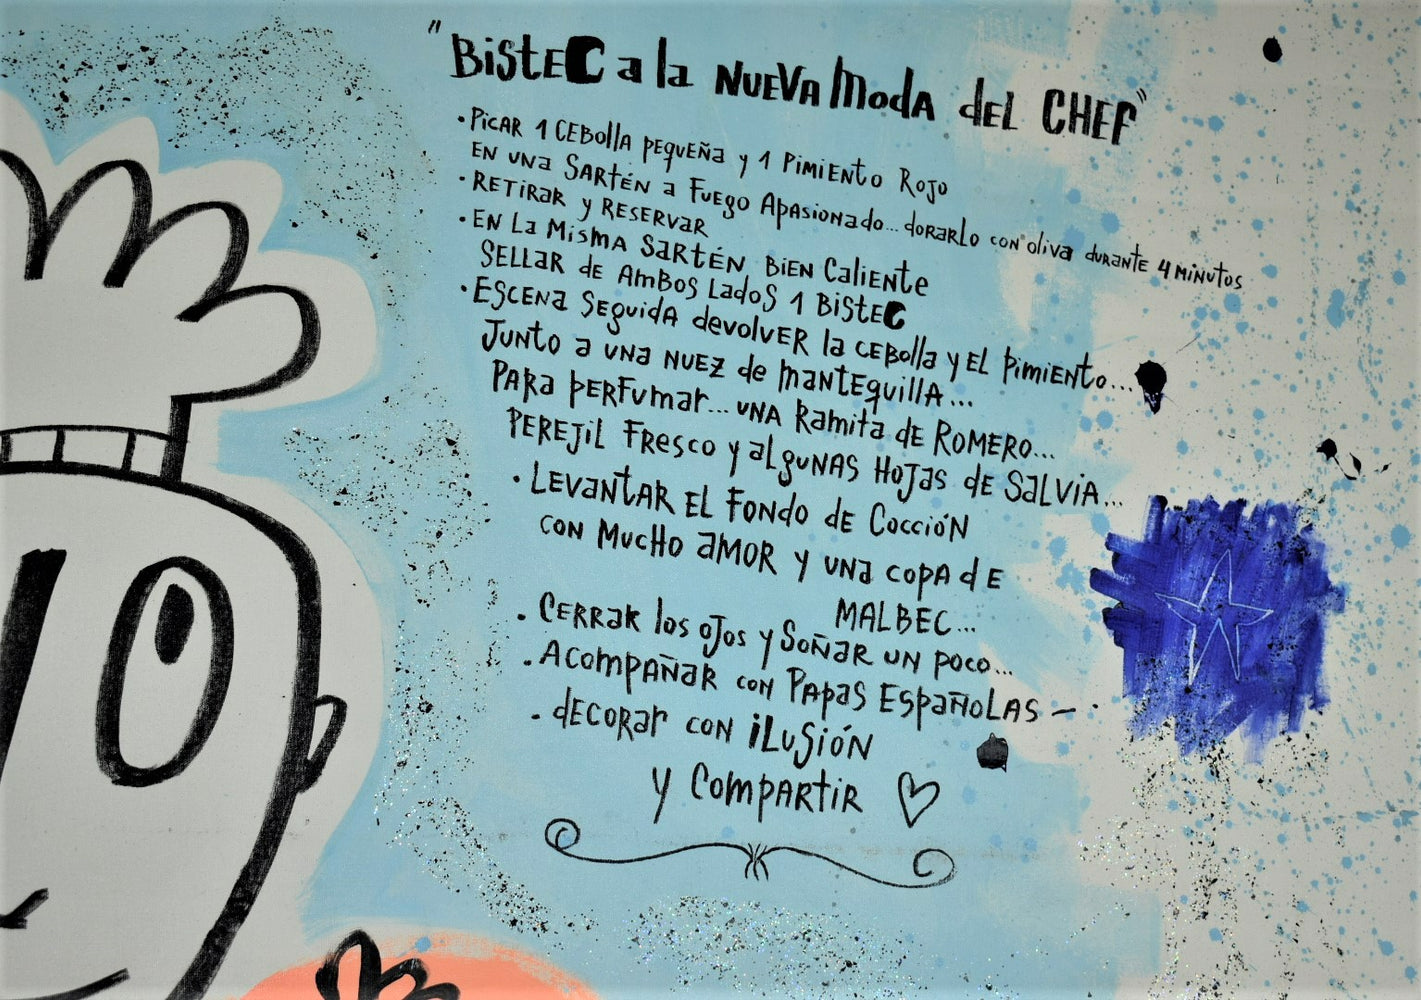 "Bistec a la nueva moda del CHEF"
• Picar 1 cebolla pequeña y 1 pimiento rojo
en una sartén a fuego apasionado... dorarlo con oliva durante 4 minutos
• Retirar y reservar
• En la misma sartén bien caliente
sellar de ambos lados 1 bistec
• Escena seguida devolver la cebolla y el pimiento...
junto a una nuez de mantequilla...
para perfumar... una ramita de romero...
perejil fresco y algunas hojas de salvia...
• Levantar el fondo de cocción
con mucho amor y una copa de
MALBEC...
• Cerrar los ojos y soñar un poco...
• Acompañar con papas españolas –
• decorar con ilusión
y compartir